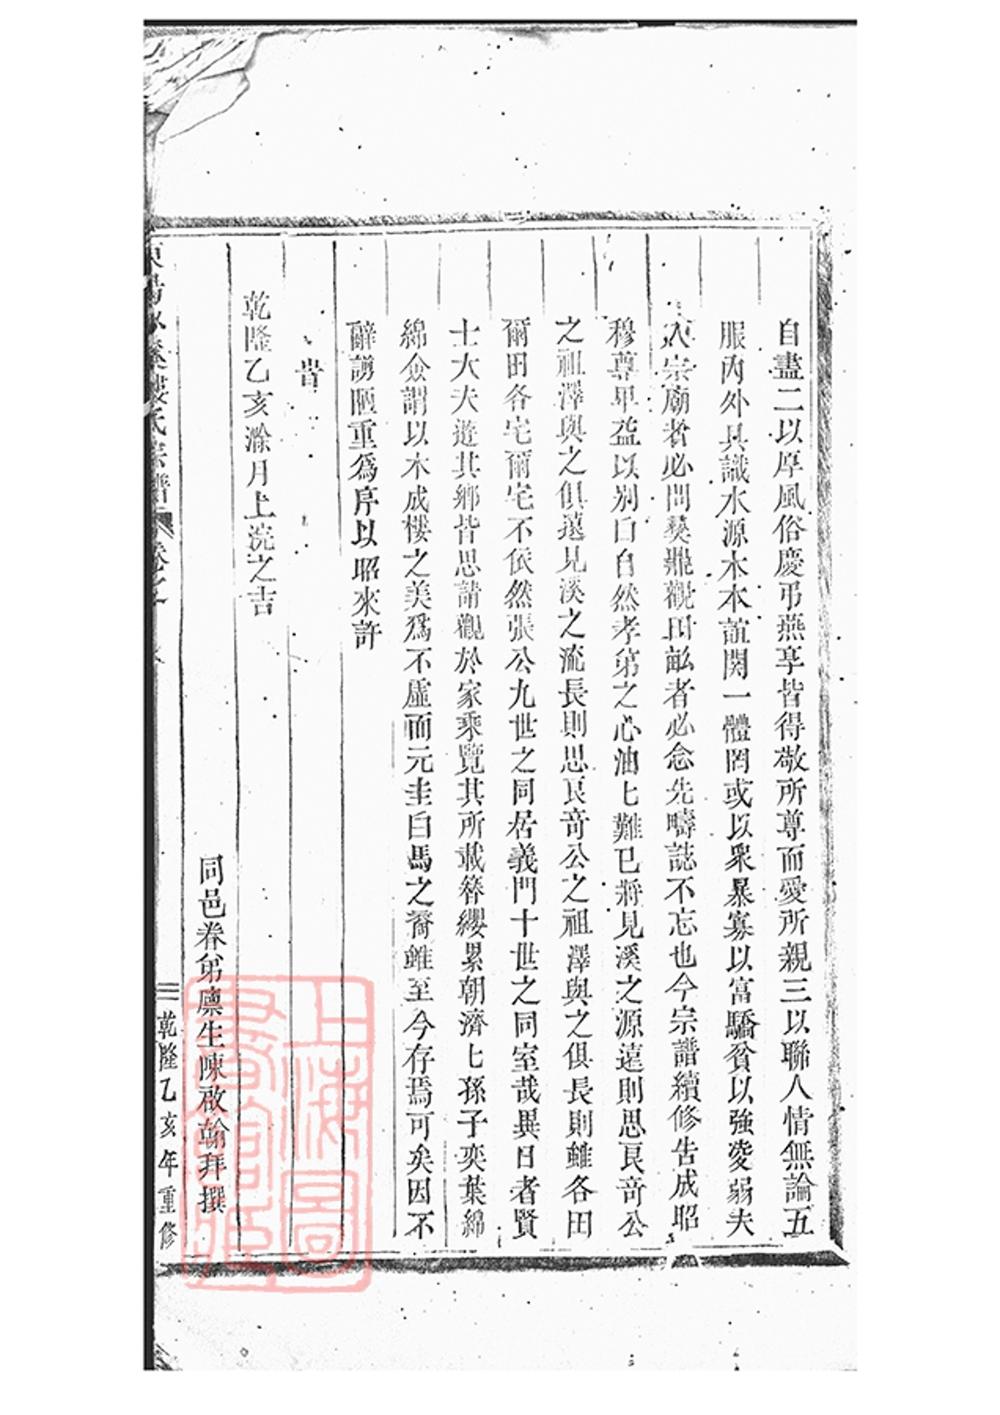 自盡二以厚風俗慶弔燕享皆得敬所尊而愛所親三以聯人情無論五
服內外具識水源木本誼関一體罔或以衆暴寡以富驕貧以強凌弱夫
入宗廟者必問彝鼎觀田畝者必念先疇誌不忘也今宗譜續修告成昭
穆尊卑益以別白自然孝弟之心油匕難已將見溪之源遠則思良竒公
之祖澤與之俱遠見溪之流長則思良竒公之祖澤與之俱長則雖各田
爾田各宅爾宅不依然張公九世之同居義門十世之同室哉異日者賢
士大夫遊其鄉皆思請觀於家乘覽其所載簪纓累朝濟匕孫子奕葉綿
綿僉謂以木成樓之美爲不虛而元圭白馬之裔雖至今存焉可矣因不
辭謭陋重爲序以昭來許
旹
乾隆乙亥滌月上浣之吉
同邑眷弟廪生陳啟翰拜撰
氏宗譜 卷之
乾隆乙亥年重修
上海圖書館藏